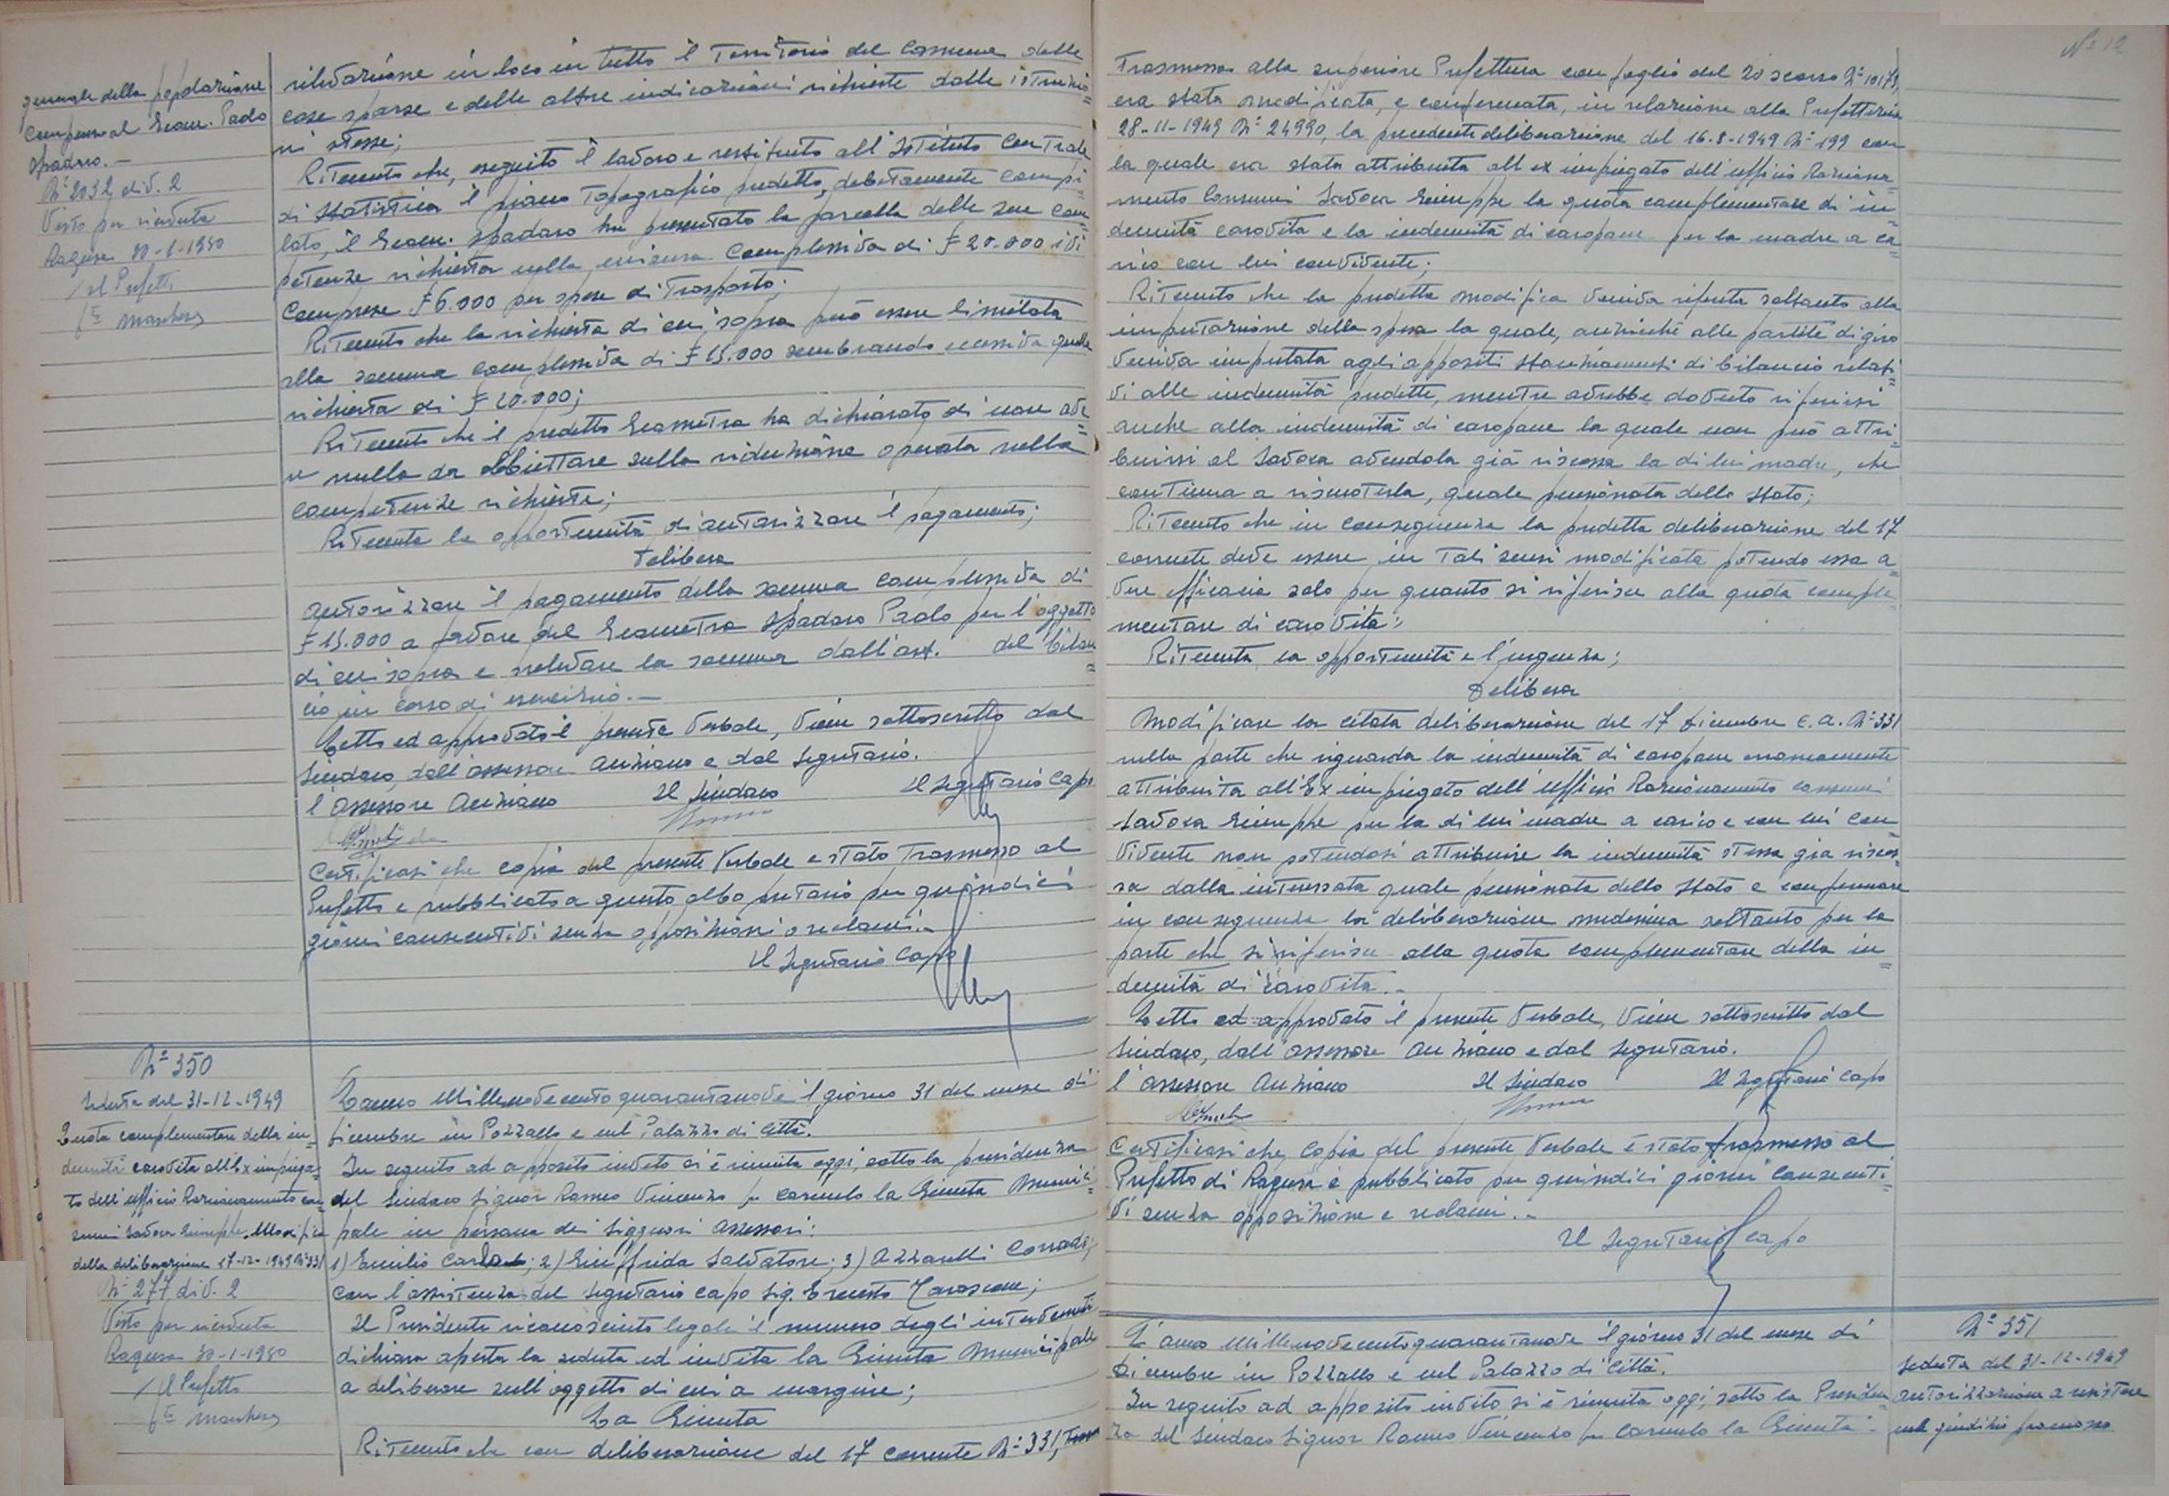 generale della popolazione
Compenso al Geom. Paolo
Spadaro.—
N° 2032 div. 2
Visto per ricevuta
Ragusa 30-1-1950
Il Prefetto
rilevazione in loco in tutto il Territorio del Comune delle
case sparse e delle altre indicazioni richieste dalle istruzio=
ni stesse;
Ritenuto che, eseguito il lavoro e restituito all'Istituto Centrale
di Statistica il piano Topografico predetto, debitamente compi=
lato, il Geom. Spadaro ha presentato la parcella delle sue com=
petenze richiesta nella misura complessiva di £ 20.000 ivi
comprese £ 6.000 per spese di Trasporto;
Ritenuto che la richiesta di cui sopra può essere limitata
alla somma complessiva di £ 15.000 sembrando eccessiva quella
richiesta di £ 20.000;
Ritenuto che il predetto Geometra ha dichiarato di non ave=
re nulla da obbiettare sulla riduzione operata nella
competenze richieste;
Ritenuta la opportunità di autorizzare il pagamento;
Delibera
autorizzare il pagamento della somma complessiva di
£ 15.000 a favore del Geometra Spadaro Paolo per l'oggetto
di cui sopra e prelevare la somma dall'art. del bilan=
cio in corso di esercizio.—
Letto ed approvato il presente Verbale, viene sottoscritto dal
Sindaco, dall'assessore anziano e dal Segretario.
l'assessore anziano Il Sindaco Il Segretario Capo
Certificasi che copia del presente Verbale e stato Trasmesso al
Prefetto e pubblicato a questo albo pretorio per quindici
giorni consecutivi senza opposizioni o reclami.—
Il Segretario Capo
N° 350
Seduta del 31-12-1949
Quota complementare della in=
dennità carovita all'Ex impiega=
to dell'ufficio Razionamento con=
sumi Savoca Giuseppe. Modifica
della deliberazione 17-12-1949 N° 331
N° 277 div. 2
Visto per ricevuta
Ragusa 30-1-1950
Il Prefetto
L'anno Millenovecentoquarantanove il giorno 31 del mese di
Dicembre in Pozzallo e nel Palazzo di Città.
In seguito ad apposito invito si è riunita oggi, sotto la presidenza
del Sindaco Signor Romeo Vincenzo fu Carmelo la Giunta Munici=
pale in persona dei Siggnori assessori:
1) Emilio Carlo; 2) Giuffrida Salvatore; 3) Azzarelli Corrado;
con l'assistenza del Segretario capo Sig. Ernesto
Il Presidente riconosciuto legale il numero degli intervenuti
dichiara aperta la seduta ed invita la Giunta Municipale
a deliberare sull'oggetto di cui a margine;
La Giunta
Ritenuto che con deliberazione del 17 corrente N° 331,
N° 12
Trasmessa alla superiore Prefettura con foglio del 20 scorso N° 10178,
era stata modificata, e confermata, in relazione alla Prefettizia
28-11-1949 N° 24990, la precedente deliberazione del 16-8-1949 N° 199 con
la quale era stata attribuita all'ex impiegato dell'ufficio Raziona=
mento Consumi Savoca Giuseppe la quota complementare di in=
dennità carovita e la indennità di caropane per la madre a ca=
rico con lui convivente;
Ritenuto che la predetta modifica veniva riferita soltanto alla
imputazione della spesa la quale, anzichè alle partite di giro
veniva imputata agli appositi stanziamenti di bilancio relati=
vi alle indennità predette, mentre avrebbe dovuto riferirsi
anche alla indennità di caropane la quale non può attri=
buirsi al Savoca avendola già riscossa la di lui madre, che
continua a riscuoterla, quale pensionata dello Stato;
Ritenuto che in conseguenza la predetta deliberazione del 17
corrente deve essere in tali sensi modificata potendo essa a=
vere efficacia solo per quanto si riferisce alla quota comple=
mentare di carovita;
Ritenuta la opportunità e l'urgenza;
Delibera
Modificare la citata deliberazione del 17 Dicembre c.a. N° 331
nella parte che riguarda la indennità di caropane erroneamente
attribuita all'Ex impiegato dell'ufficio Razionamento consumi
Savoca Giuseppe per la di lui madre a carico e con lui con=
vivente non potendosi attribuire la indennità stessa già riscos=
sa dalla interessata quale pensionata dello Stato e confermare
in conseguenza la deliberazione medesima soltanto per la
parte che si riferisce alla quota complementare della in=
dennità di carovita.—
Letto ed approvato il presente Verbale, viene sottoscritto dal
Sindaco, dall'assessore anziano e dal Segretario.
l'assessore anziano Il Sindaco Il Segretario Capo
Certificasi che copia del presente Verbale è stato trasmesso al
Prefetto di Ragusa e pubblicato per quindici giorni consecuti=
vi senza opposizione e reclami.—
Il Segretario Capo
L'anno Millenovecentoquarantanove il giorno 31 del mese di
Dicembre in Pozzallo e nel Palazzo di Città.
In seguito ad apposito invito si è riunita oggi, sotto la Presiden
za del Sindaco Signor Romeo Vincenzo fu Carmelo la Giunta
N° 351
Seduta del 31-12-1949
autorizzazione a resistere
nel giudizio promosso